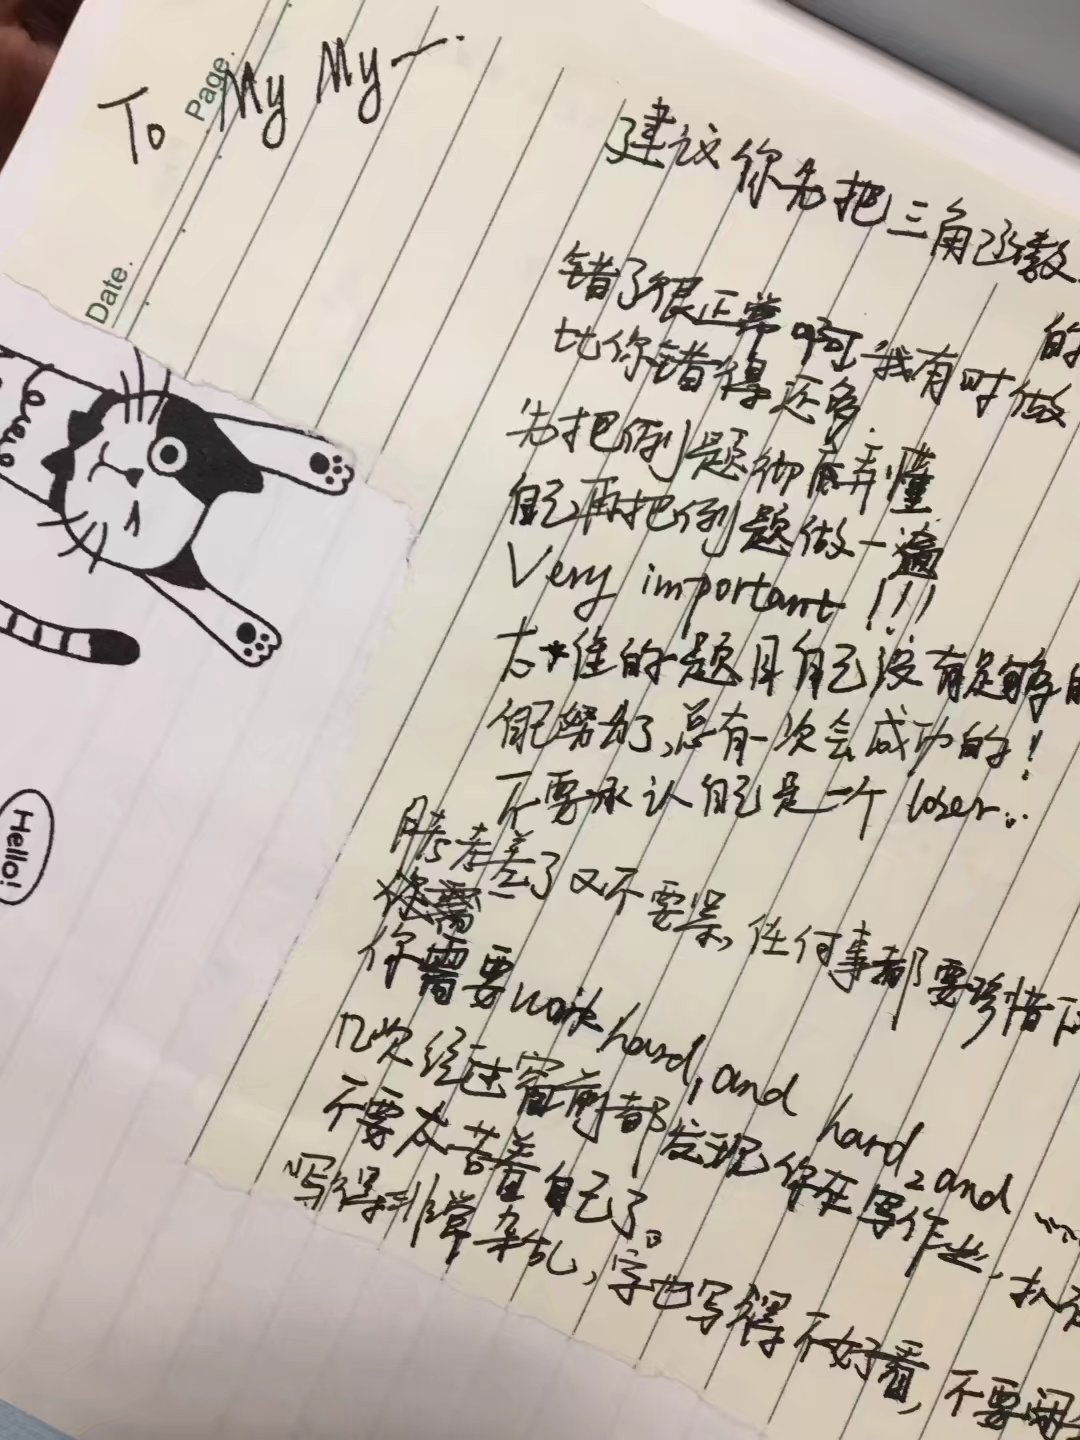 Page.
Date.
To My My
建议你先把三角函数
的
错了很正常啊,我有时做
比你错得还多.
先把例题彻底弄懂
自己再把例题做一遍
Very important!!!
太难的题目自己没有足够
但努力了,总有一次会成功的!
不要承认自己是一个loser..
考差了又不要哭,任何事都要珍惜
你需要work hard, and hard, and ......
几次经过窗前都发现你在写作业,
不要太苦着自己了。
写得非常杂乱,字也写得不好看,不要
Hello!